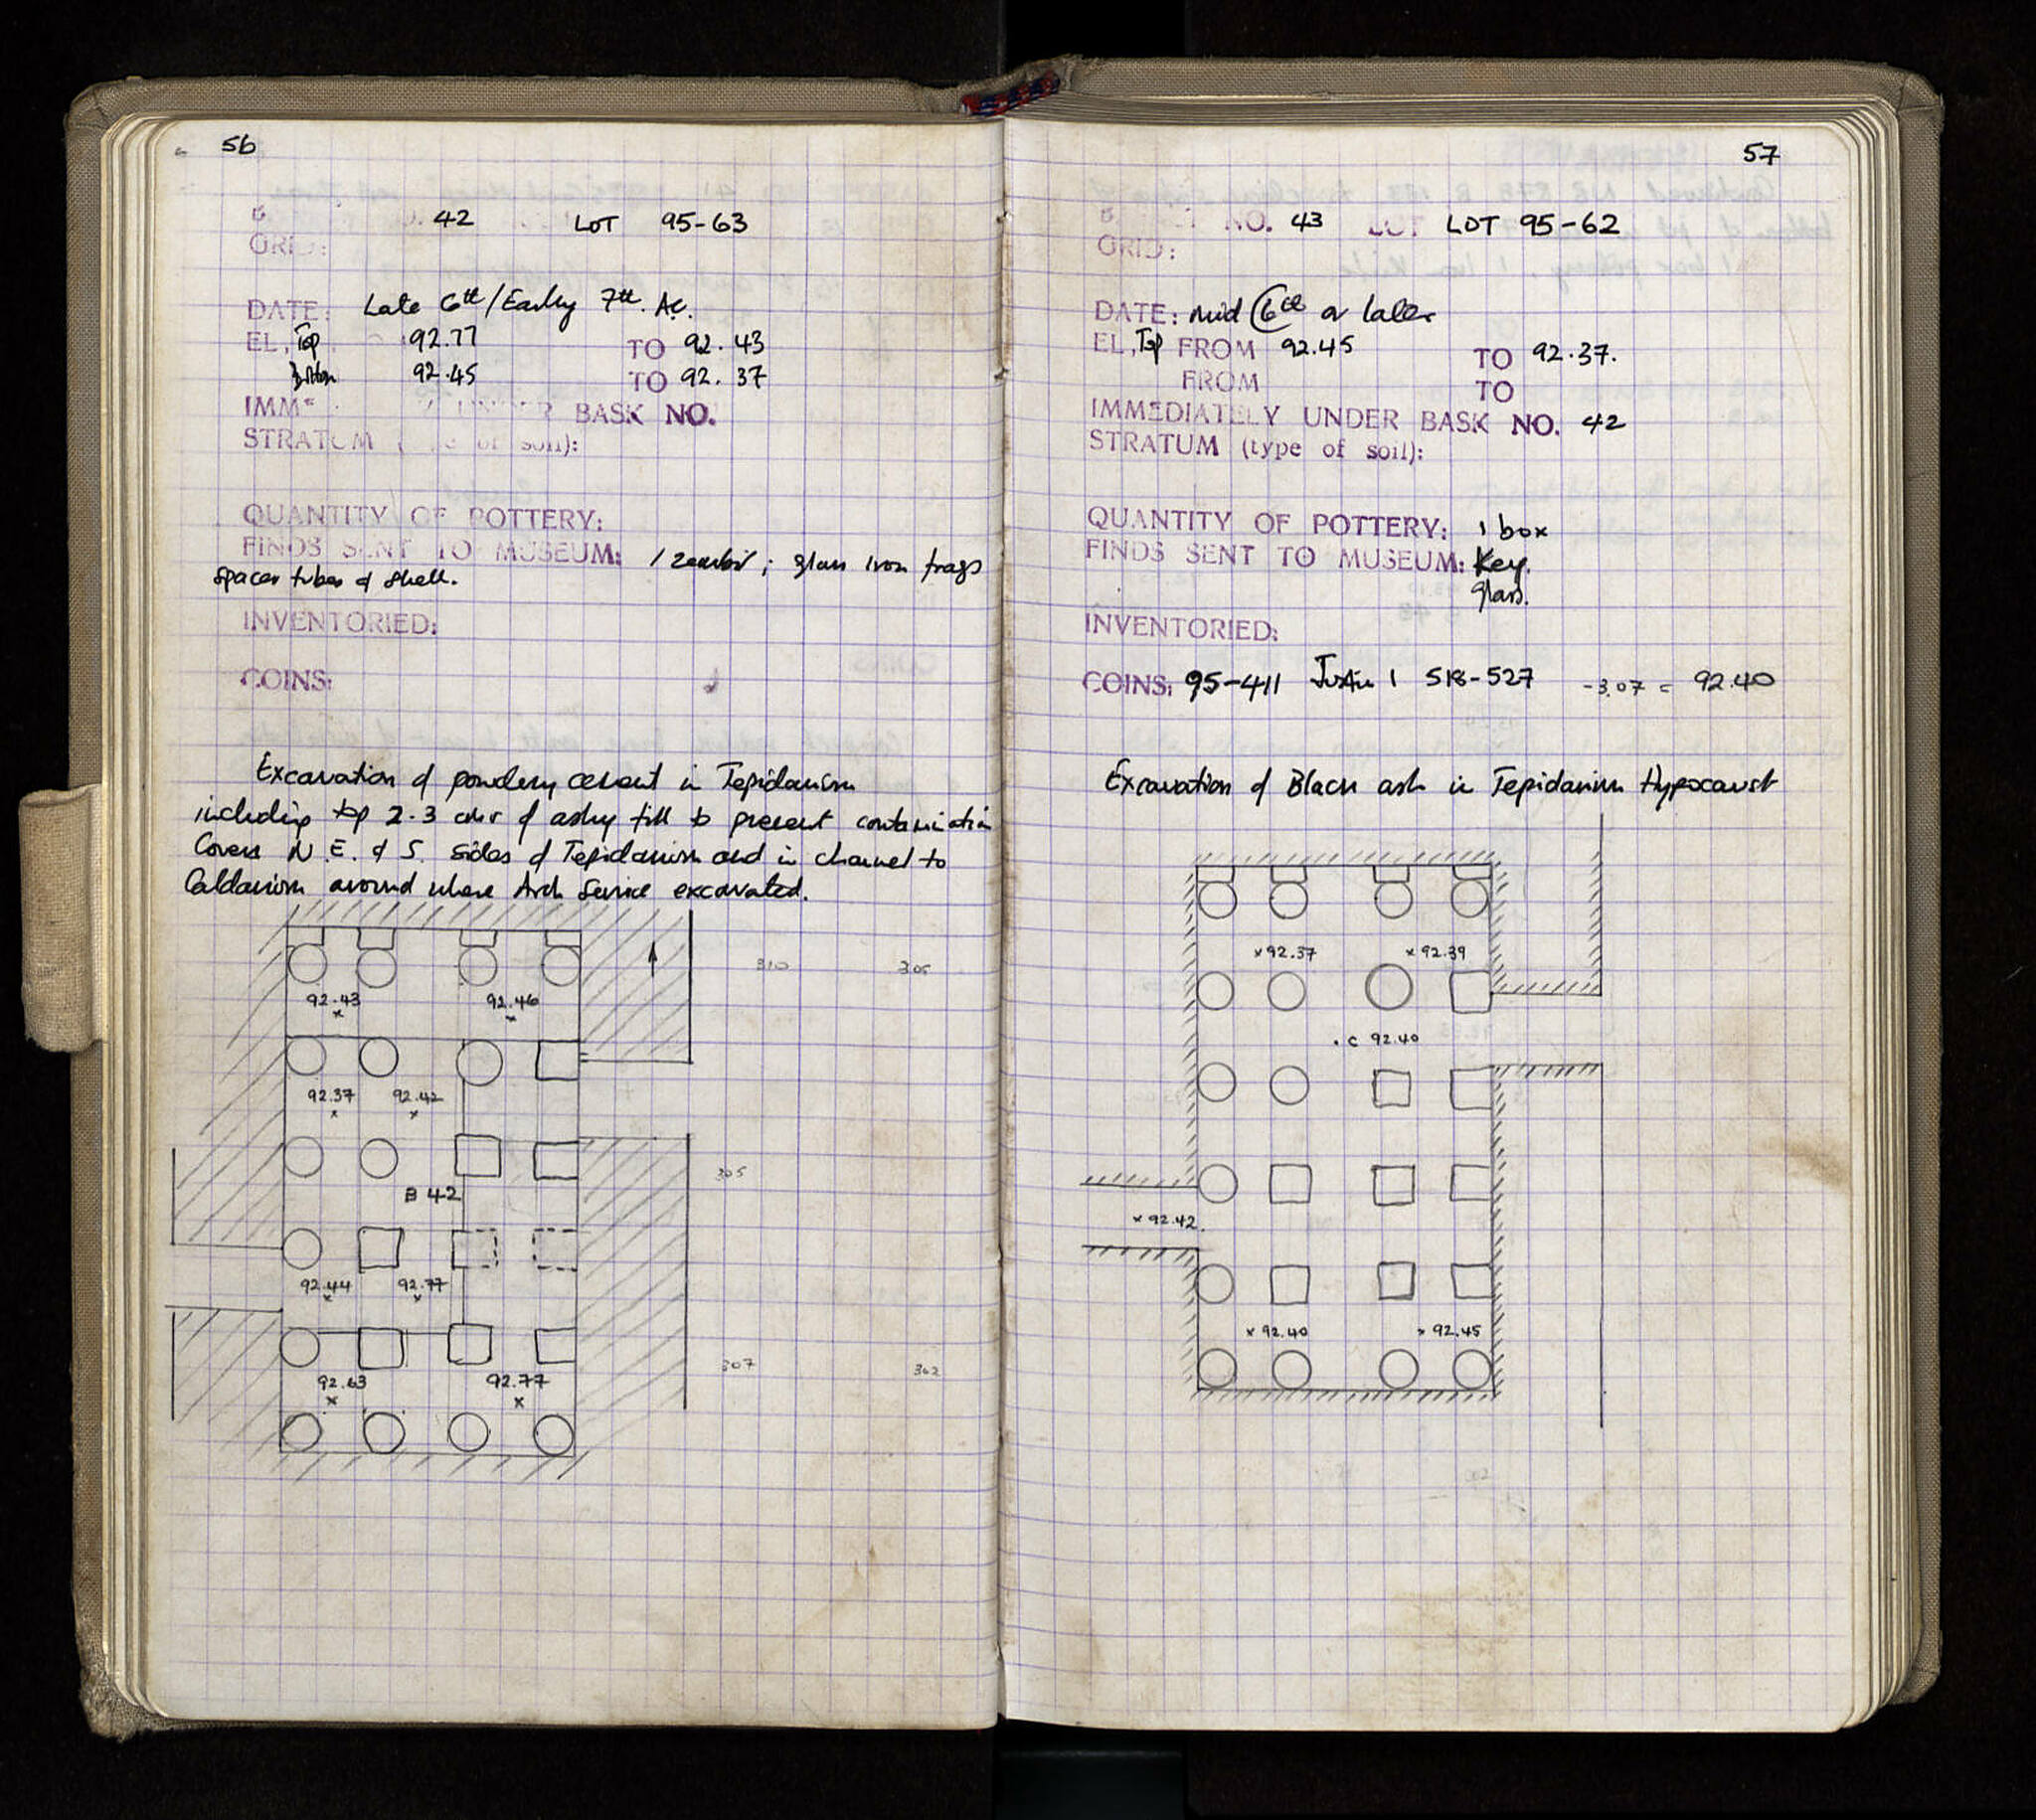 56
42 LOT 95-63
GRID:
DATE: Late 6th/Early 7th. AC.
EL, Top 92.77 TO 92.43
Bottom 92.45 TO 92.37
IMM UNDER BASK NO.
STRATUM of soil):
QUANTITY OF POTTERY:
FINDS SENT TO MUSEUM: 1 zembil; glass iron frags
spacer tubes & shell.
INVENTORIED:
COINS:
Excavation of powdery cement in Tepidarium
including top 2-3 cms of ashy fill to prevent contamination
Covers N. E. & S. sides of Tepidarium and in channel to
Caldarium around where Arch Service excavated.
310 305
92.43 92.46
92.37 92.42
305
B 42
92.44 92.77
307 302
92.63 92.77
57
NO. 43 LOT LOT 95-62
GRID:
DATE: mid 6th or later
EL, Top FROM 92.45 TO 92.37.
FROM TO
IMMEDIATELY UNDER BASK NO. 42
STRATUM (type of soil):
QUANTITY OF POTTERY: 1 box
FINDS SENT TO MUSEUM: Key.
glass.
INVENTORIED:
COINS: 95-411 Justin 1 518-527 -3.07 = 92.40
Excavation of Black ash in Tepidarium Hypocaust
x 92.37 x 92.39
. C 92.40
x 92.42.
x 92.40 x 92.45